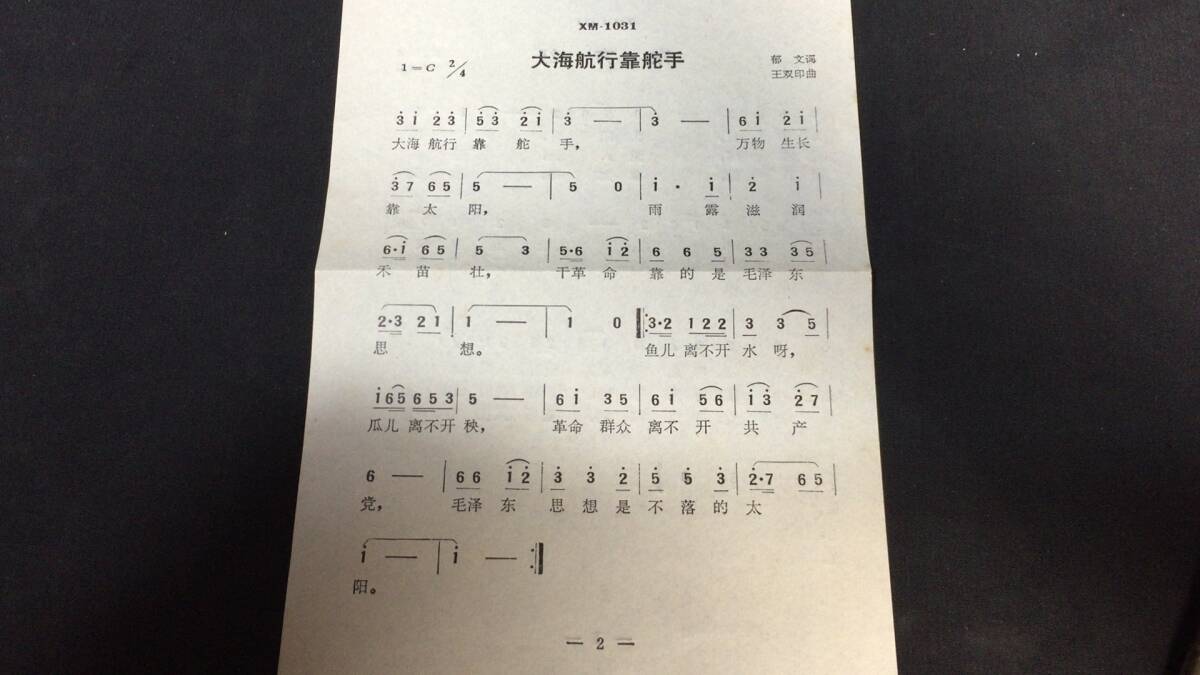 XM-1031
大海航行靠舵手
1=C 2/4
郁 文词
王双印曲
3̇ i̇ 2̇ 3̇ | 5̇ 3̇ 2̇ i̇ | 3̇ — | 3̇ — | 6 i̇ 2̇ i̇ |
大海 航行 靠 舵 手， 万物 生长
3̇ 7 6 5 | 5 — | 5 0 | i̇ · i̇ | 2̇ i̇ |
靠 太 阳， 雨 露 滋 润
6·i̇ 6 5 | 5 3 | 5·6 i̇ 2̇ | 6 6 5 | 3 3 3 5 |
禾 苗 壮， 干革 命 靠 的 是 毛泽 东
2·3 2 1 | 1 — | 1 0 ‖: 3·2 1 2 2 | 3 3 5 |
思 想。 鱼儿 离不开 水 呀，
i̇ 6 5 6 5 3 | 5 — | 6 i̇ 3 5 | 6 i̇ 5 6 | i̇ 3̇ 2̇ 7 |
瓜儿 离不开 秧， 革命 群众 离不 开 共 产
6 — | 6 6 i̇ 2̇ | 3̇ 3̇ 2̇ | 5̇ 5̇ 3̇ | 2̇·7 6 5 |
党， 毛泽 东 思 想 是 不 落 的 太
i̇ — | i̇ — :‖
阳。
— 2 —